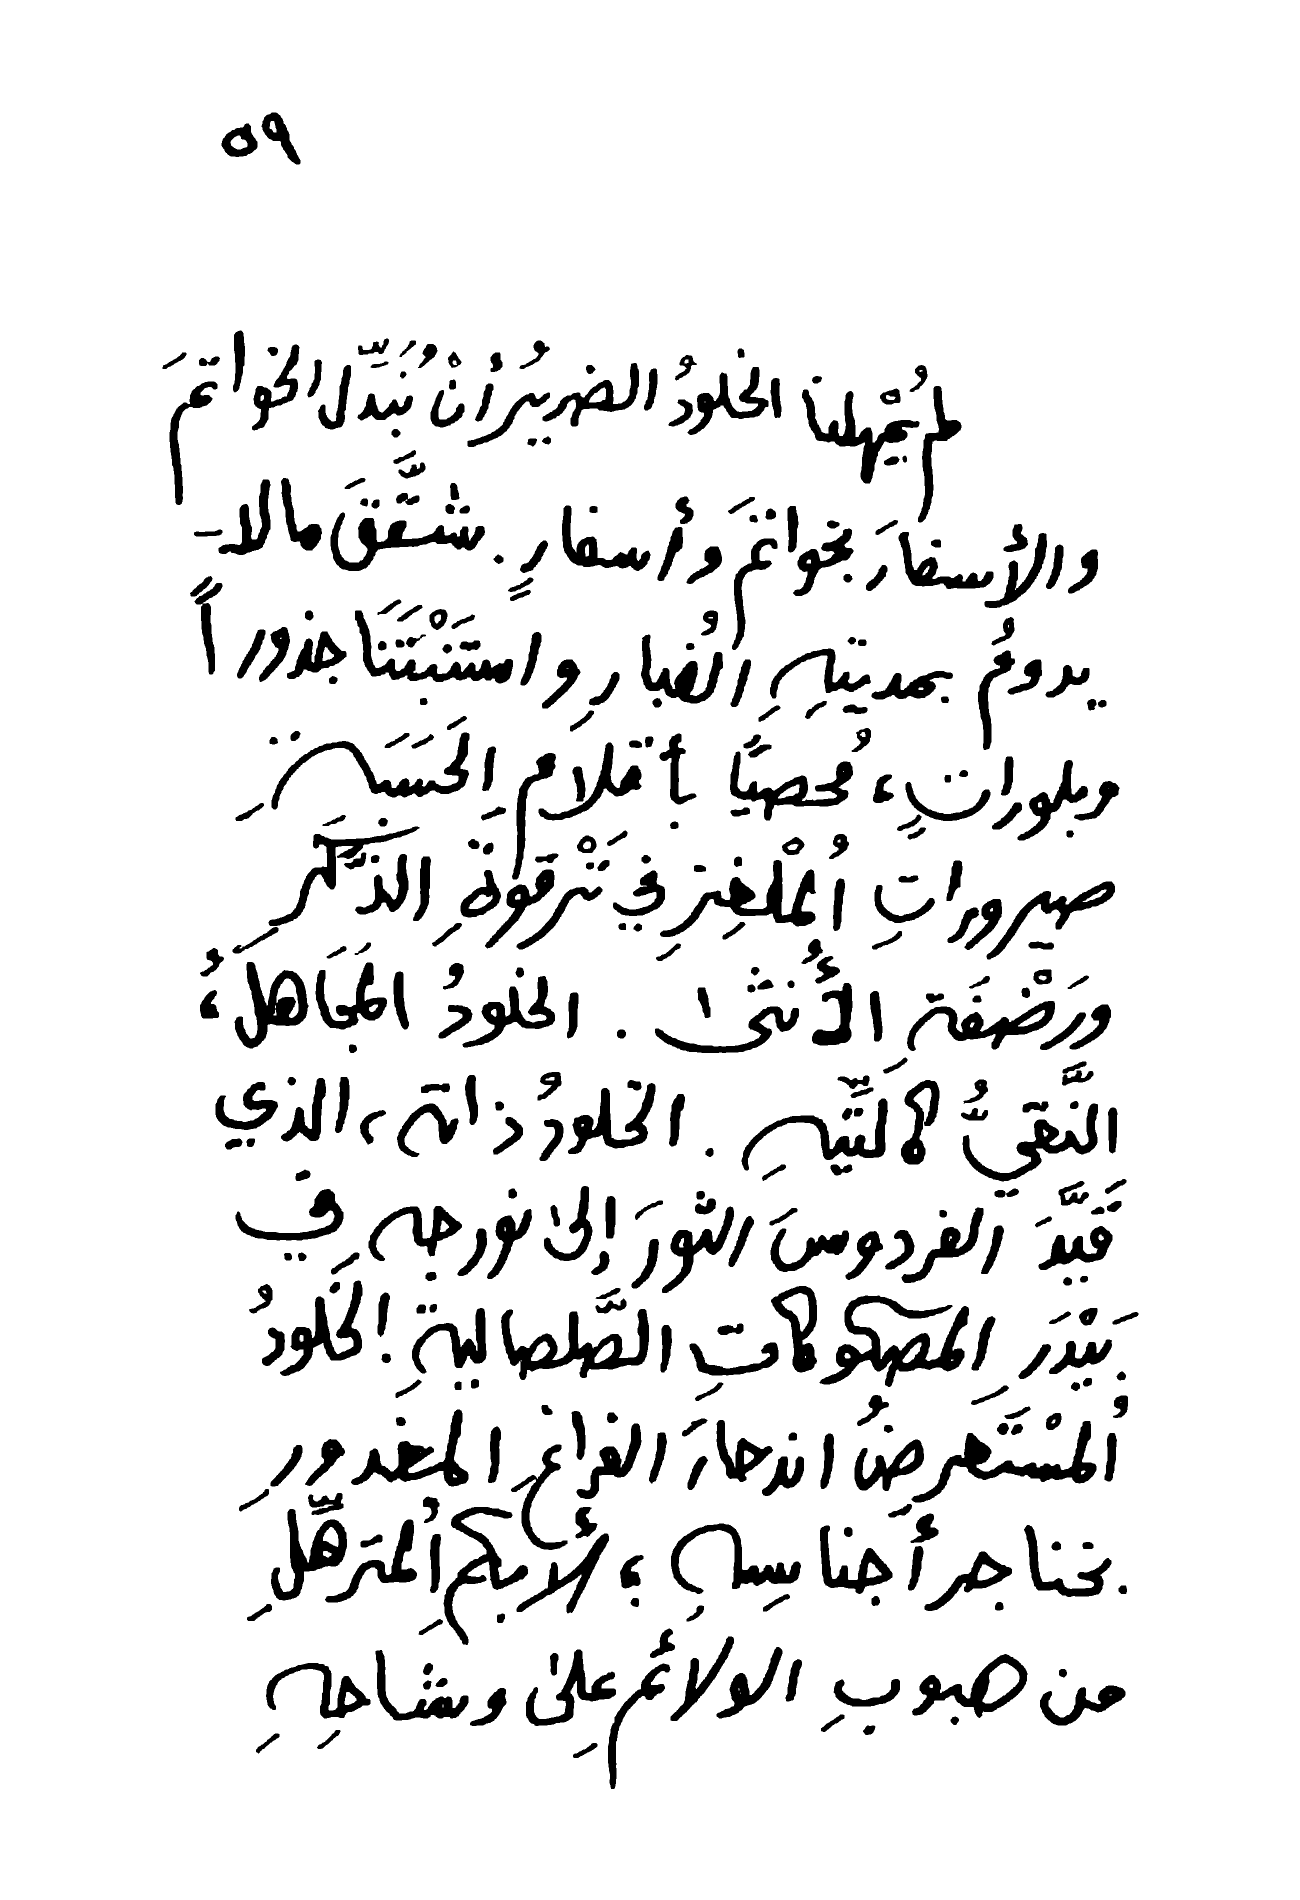 ٥٩
لم يُمْهلنا الخلودُ الضريرُ أنْ نُبَدِّل الخواتمَ
والأسفارَ بخواتمَ وأسفارٍ. شقَّقَ مالا
يدومُ بمدينتِهِ الغُبارِ واستَنْبَتَنَا جذوراً
وبلوراتٍ، مُحصيًا بأقلامِ الحَسَبَةِ
صيروراتِ المُلْغِزِ في تَرْقوةِ الذَّكَرِ
ورَضْفَةِ الأُنثى. الخلودُ المجَاهلُ،
النَّقيُّ كآلتِّيهِ. الخلودُ ذاته، الذي
قَيَّدَ الفردوسَ الثورَ إلى نورجهِ في
بَيْدَرِ المصكوكاتِ الصَّلصاليةِ! الخَلودُ
المُسْتَعرِضُ اندحارَ الفراغِ المغدورِ
بخناجر أجناسِهِ؛ الأبكمِ المُترهِّلِ
من هبوبِ الولائمِ على وشاحِهِ